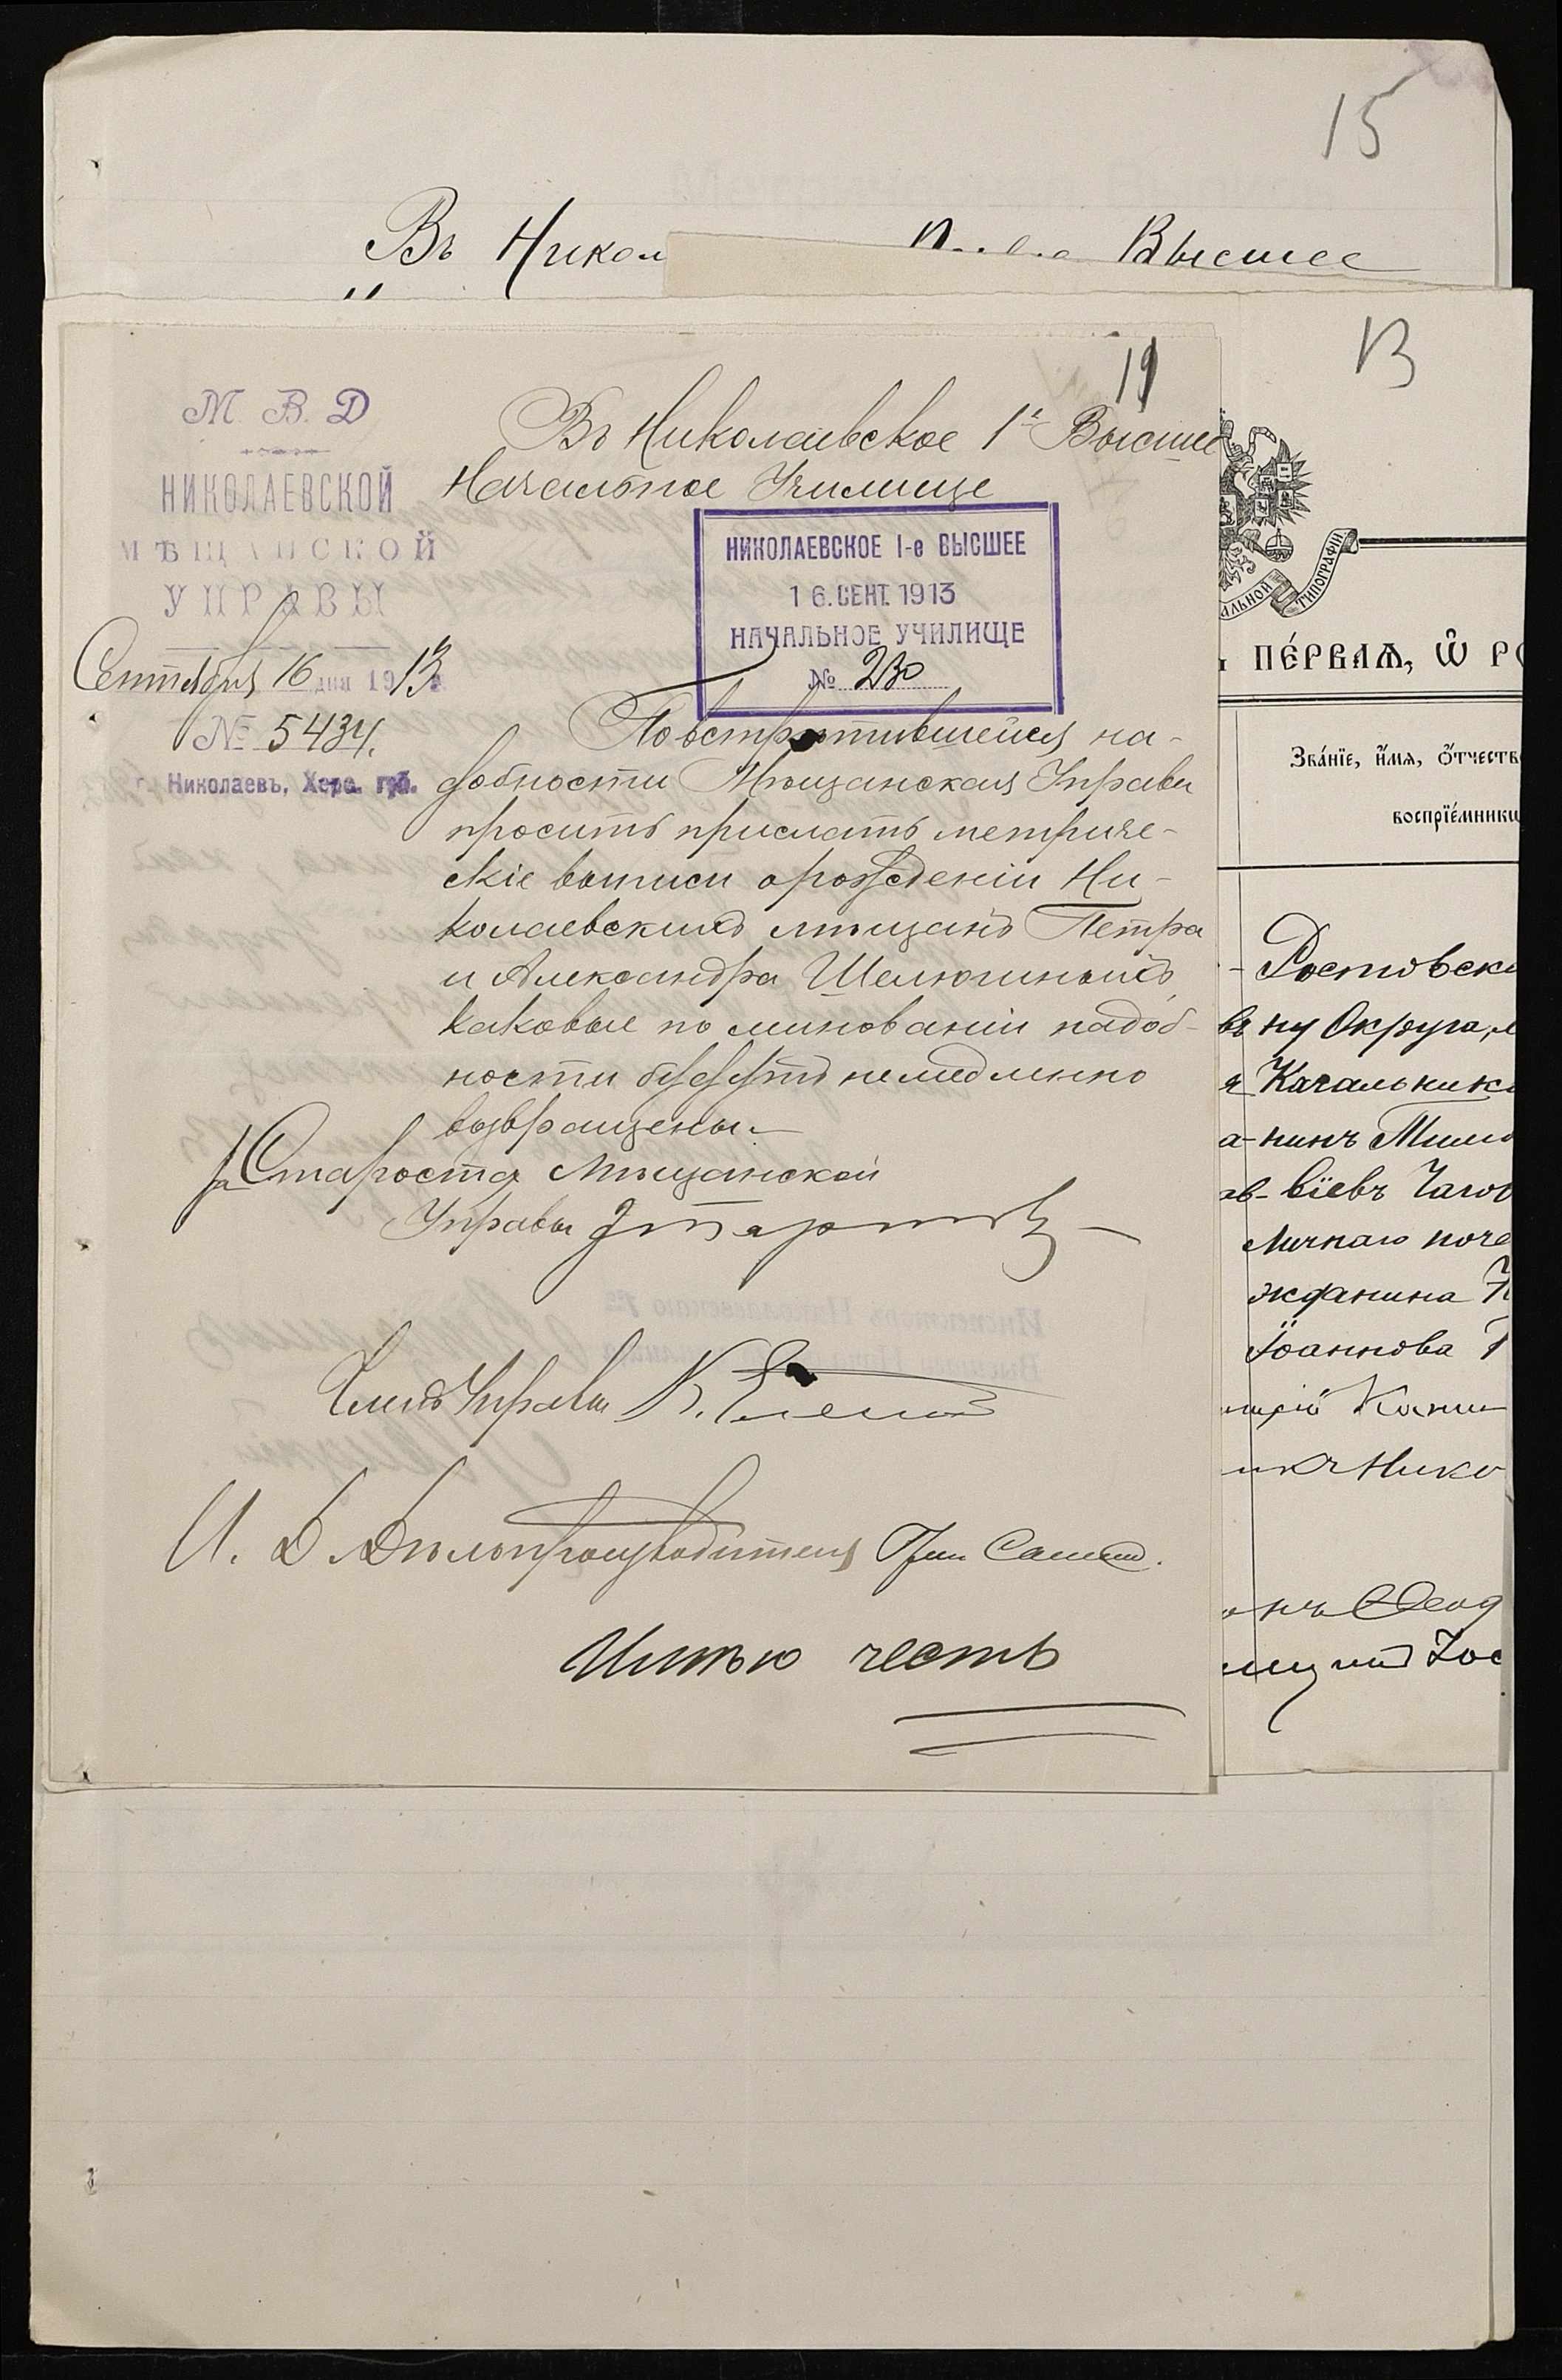 15
Въ Никол Высшее
13
19
М. В. Д
НИКОЛАЕВСКОЙ
МѢЩАНСКОЙ
УПРАВЫ
Сентября 16 дня 1913 г.
№ 5434.
г. Николаевъ, Херс. губ.
Въ Николаевское 1е Высшее
Начальное Училище
НИКОЛАЕВСКОЕ 1-е ВЫСШЕЕ
16. СЕНТ. 1913
НАЧАЛЬНОЕ УЧИЛИЩЕ
№ 230
По встрѣтившейся на-
добности Мѣщанская Управа
проситъ прислать метриче-
скіе выписи о рожденіи Ни-
колаевскихъ мѣщанъ Петра
и Александра Шелюгиныхъ
каковые по минованіи надоб-
ности будутъ немедленно
возвращены.
за Староста Мѣщанской
Управы
Членъ Управы К.
И. Д. Дѣлопроизводителя
Имѣю честь
АЛЬНОЙ ТИПОГРАФІИ
ПЕ́РВАѦ, Ѡ҆ РО
Зва́нїе, и҆́мѧ, ѻ҆́тчеств
воспрїе́мники
Ростовск
ну Округа,
Качальник
а-нинъ
вїевъ
Личнаго поче
жданина
Іоаннова
Нико